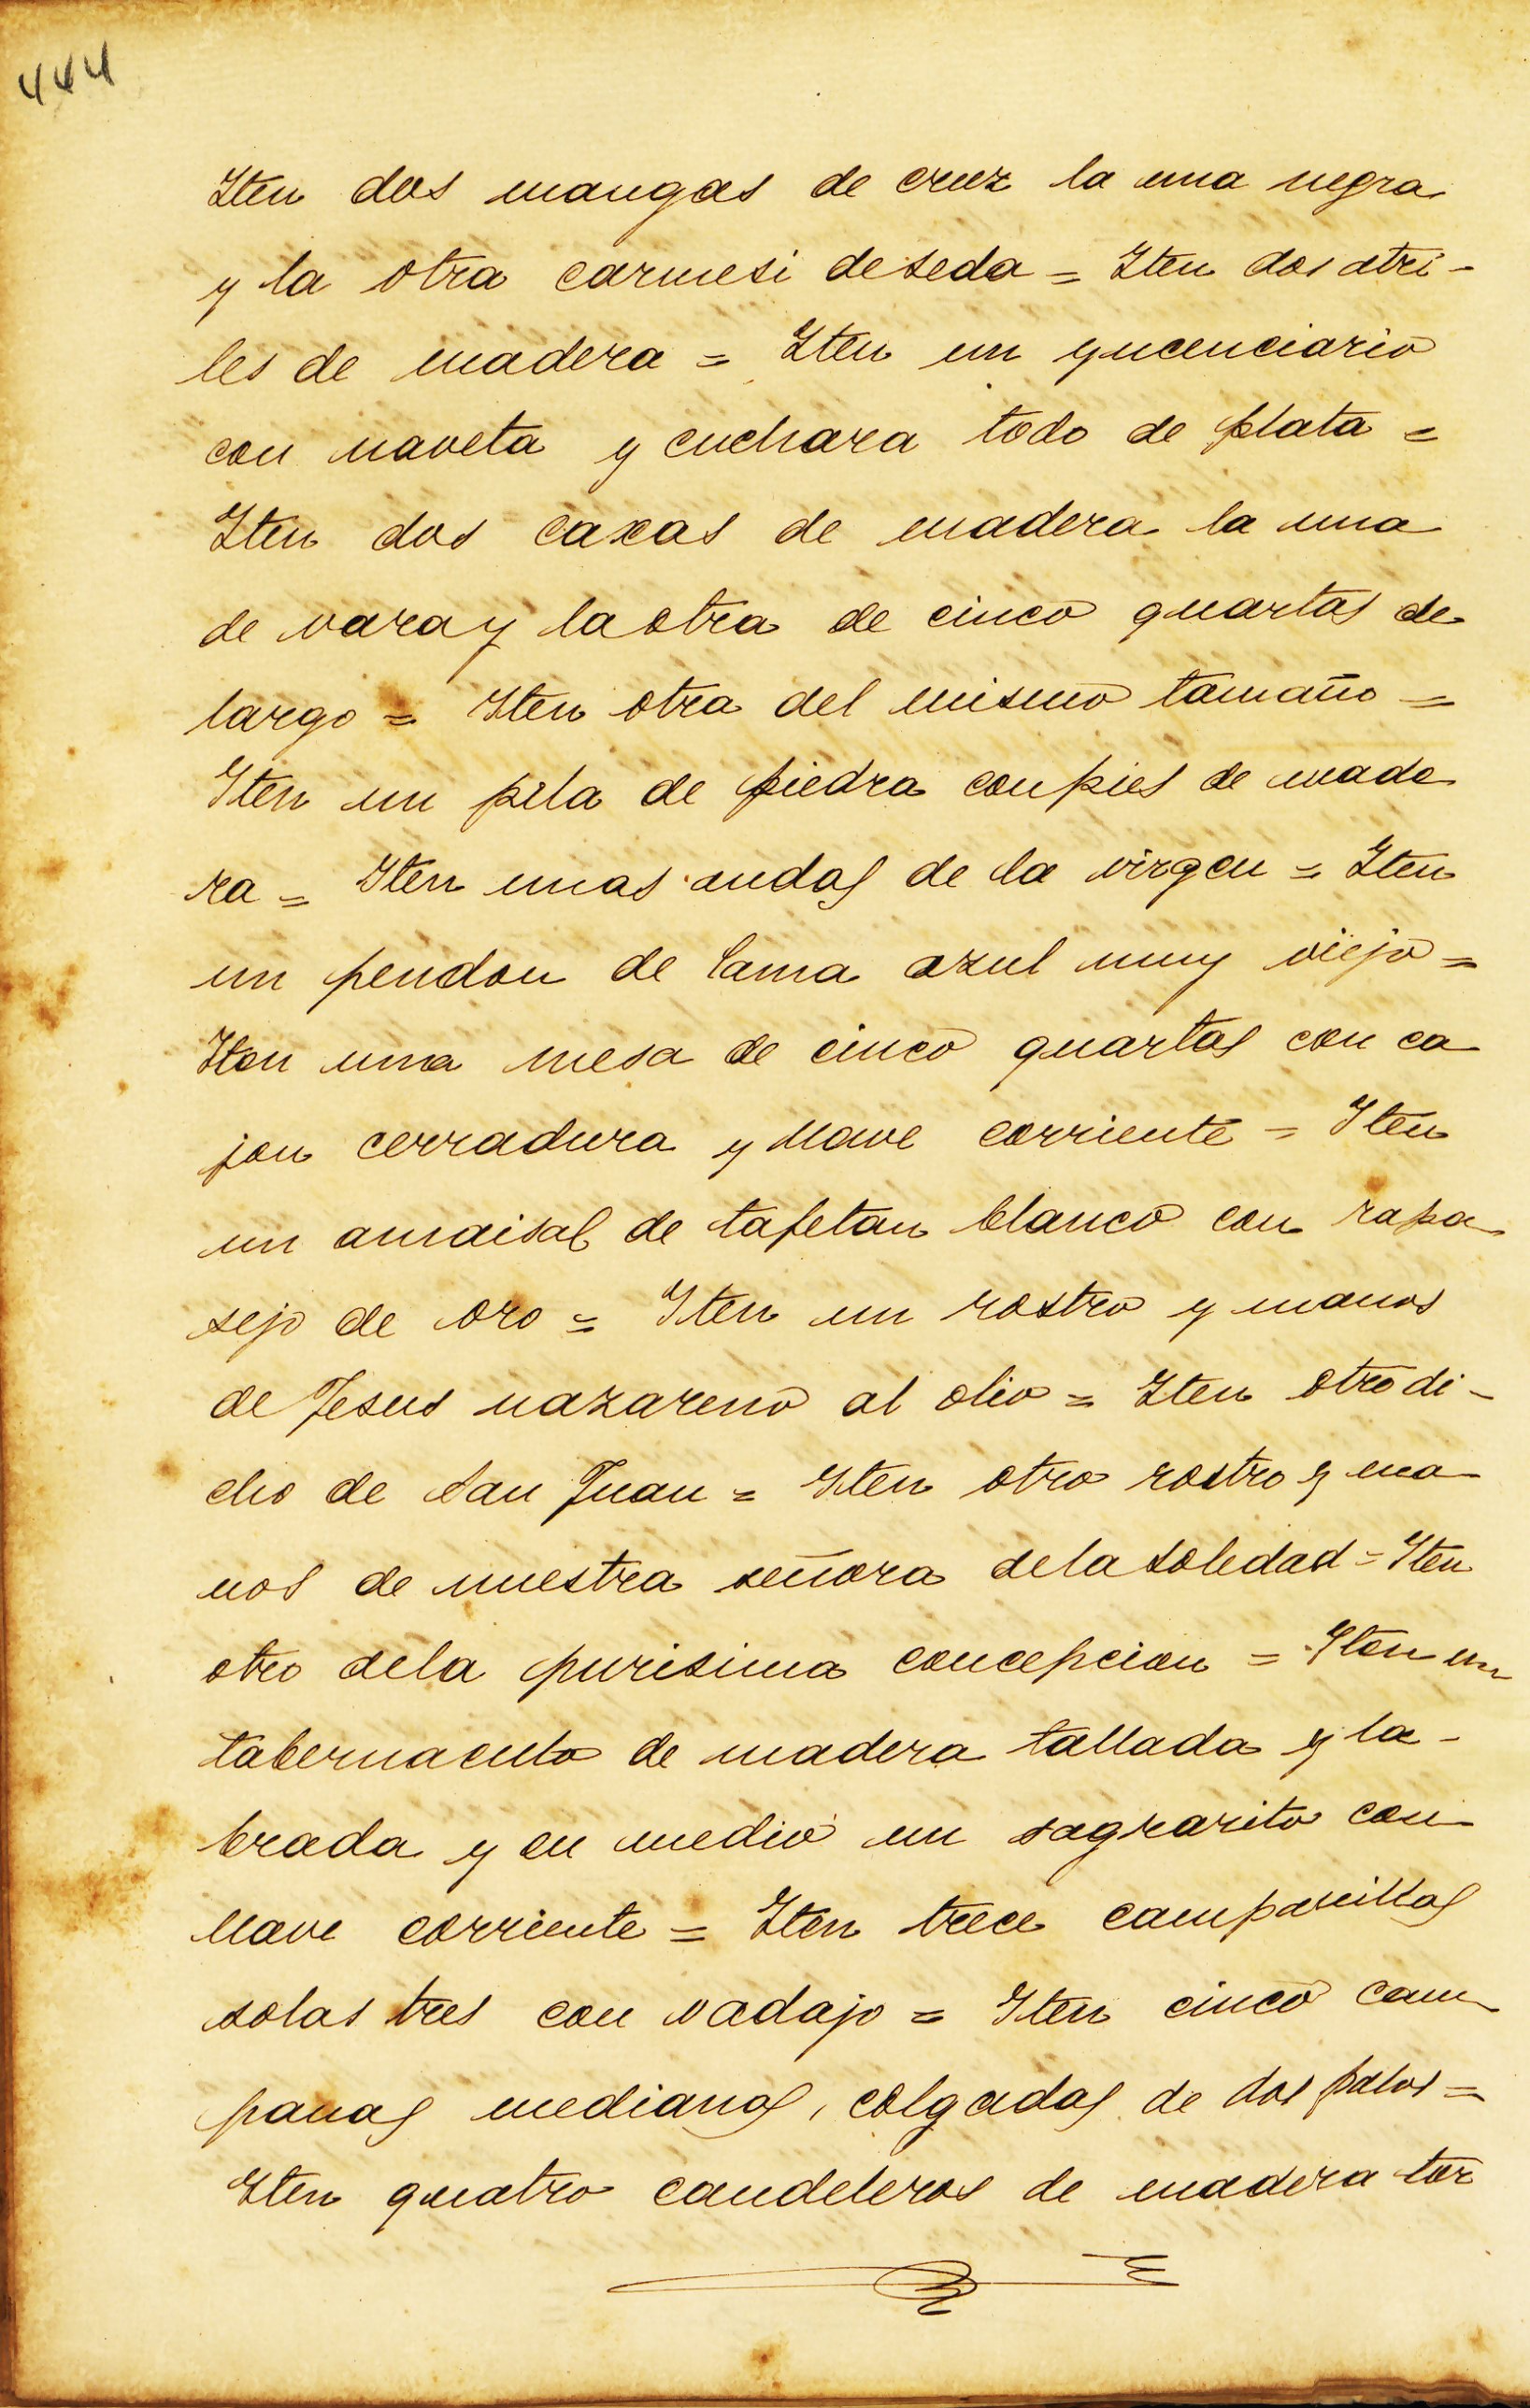 444
Iten dos mangas de cruz la una negra
y la otra carmesi de seda = Iten dos atri-
les de madera = Iten un yncenciario
con naveta y cuchara todo de plata =
Iten dos caxas de madera la una
de vara y la otra de cinco quartas de
largo = Iten otra del mismo tamaño =
Iten un pila de piedra con pies de made
ra = Iten unas andas de la virgen = Iten
un pendon de lama azul muy viejo =
Iten una mesa de cinco quartas con ca
jon cerradura y llave corriente = Iten
un amaisal de tafetan blanco con rapa
sejo de oro = Iten un rostro y manos
de Jesus nazareno al olio = Iten otro di-
cho de San Juan = Iten otro rostro y ma
nos de nuestra señora de la soledad = Iten
otro dela purisima concepcion = Iten un
tabernaculo de madera tallada y la-
brada y en medio un sagrarito con
llave corriente = Iten trece campanillas
solas tres con vadajo = Iten cinco cam
panas medianas, colgadas de dos palos =
Iten quatro candeleros de madera tor